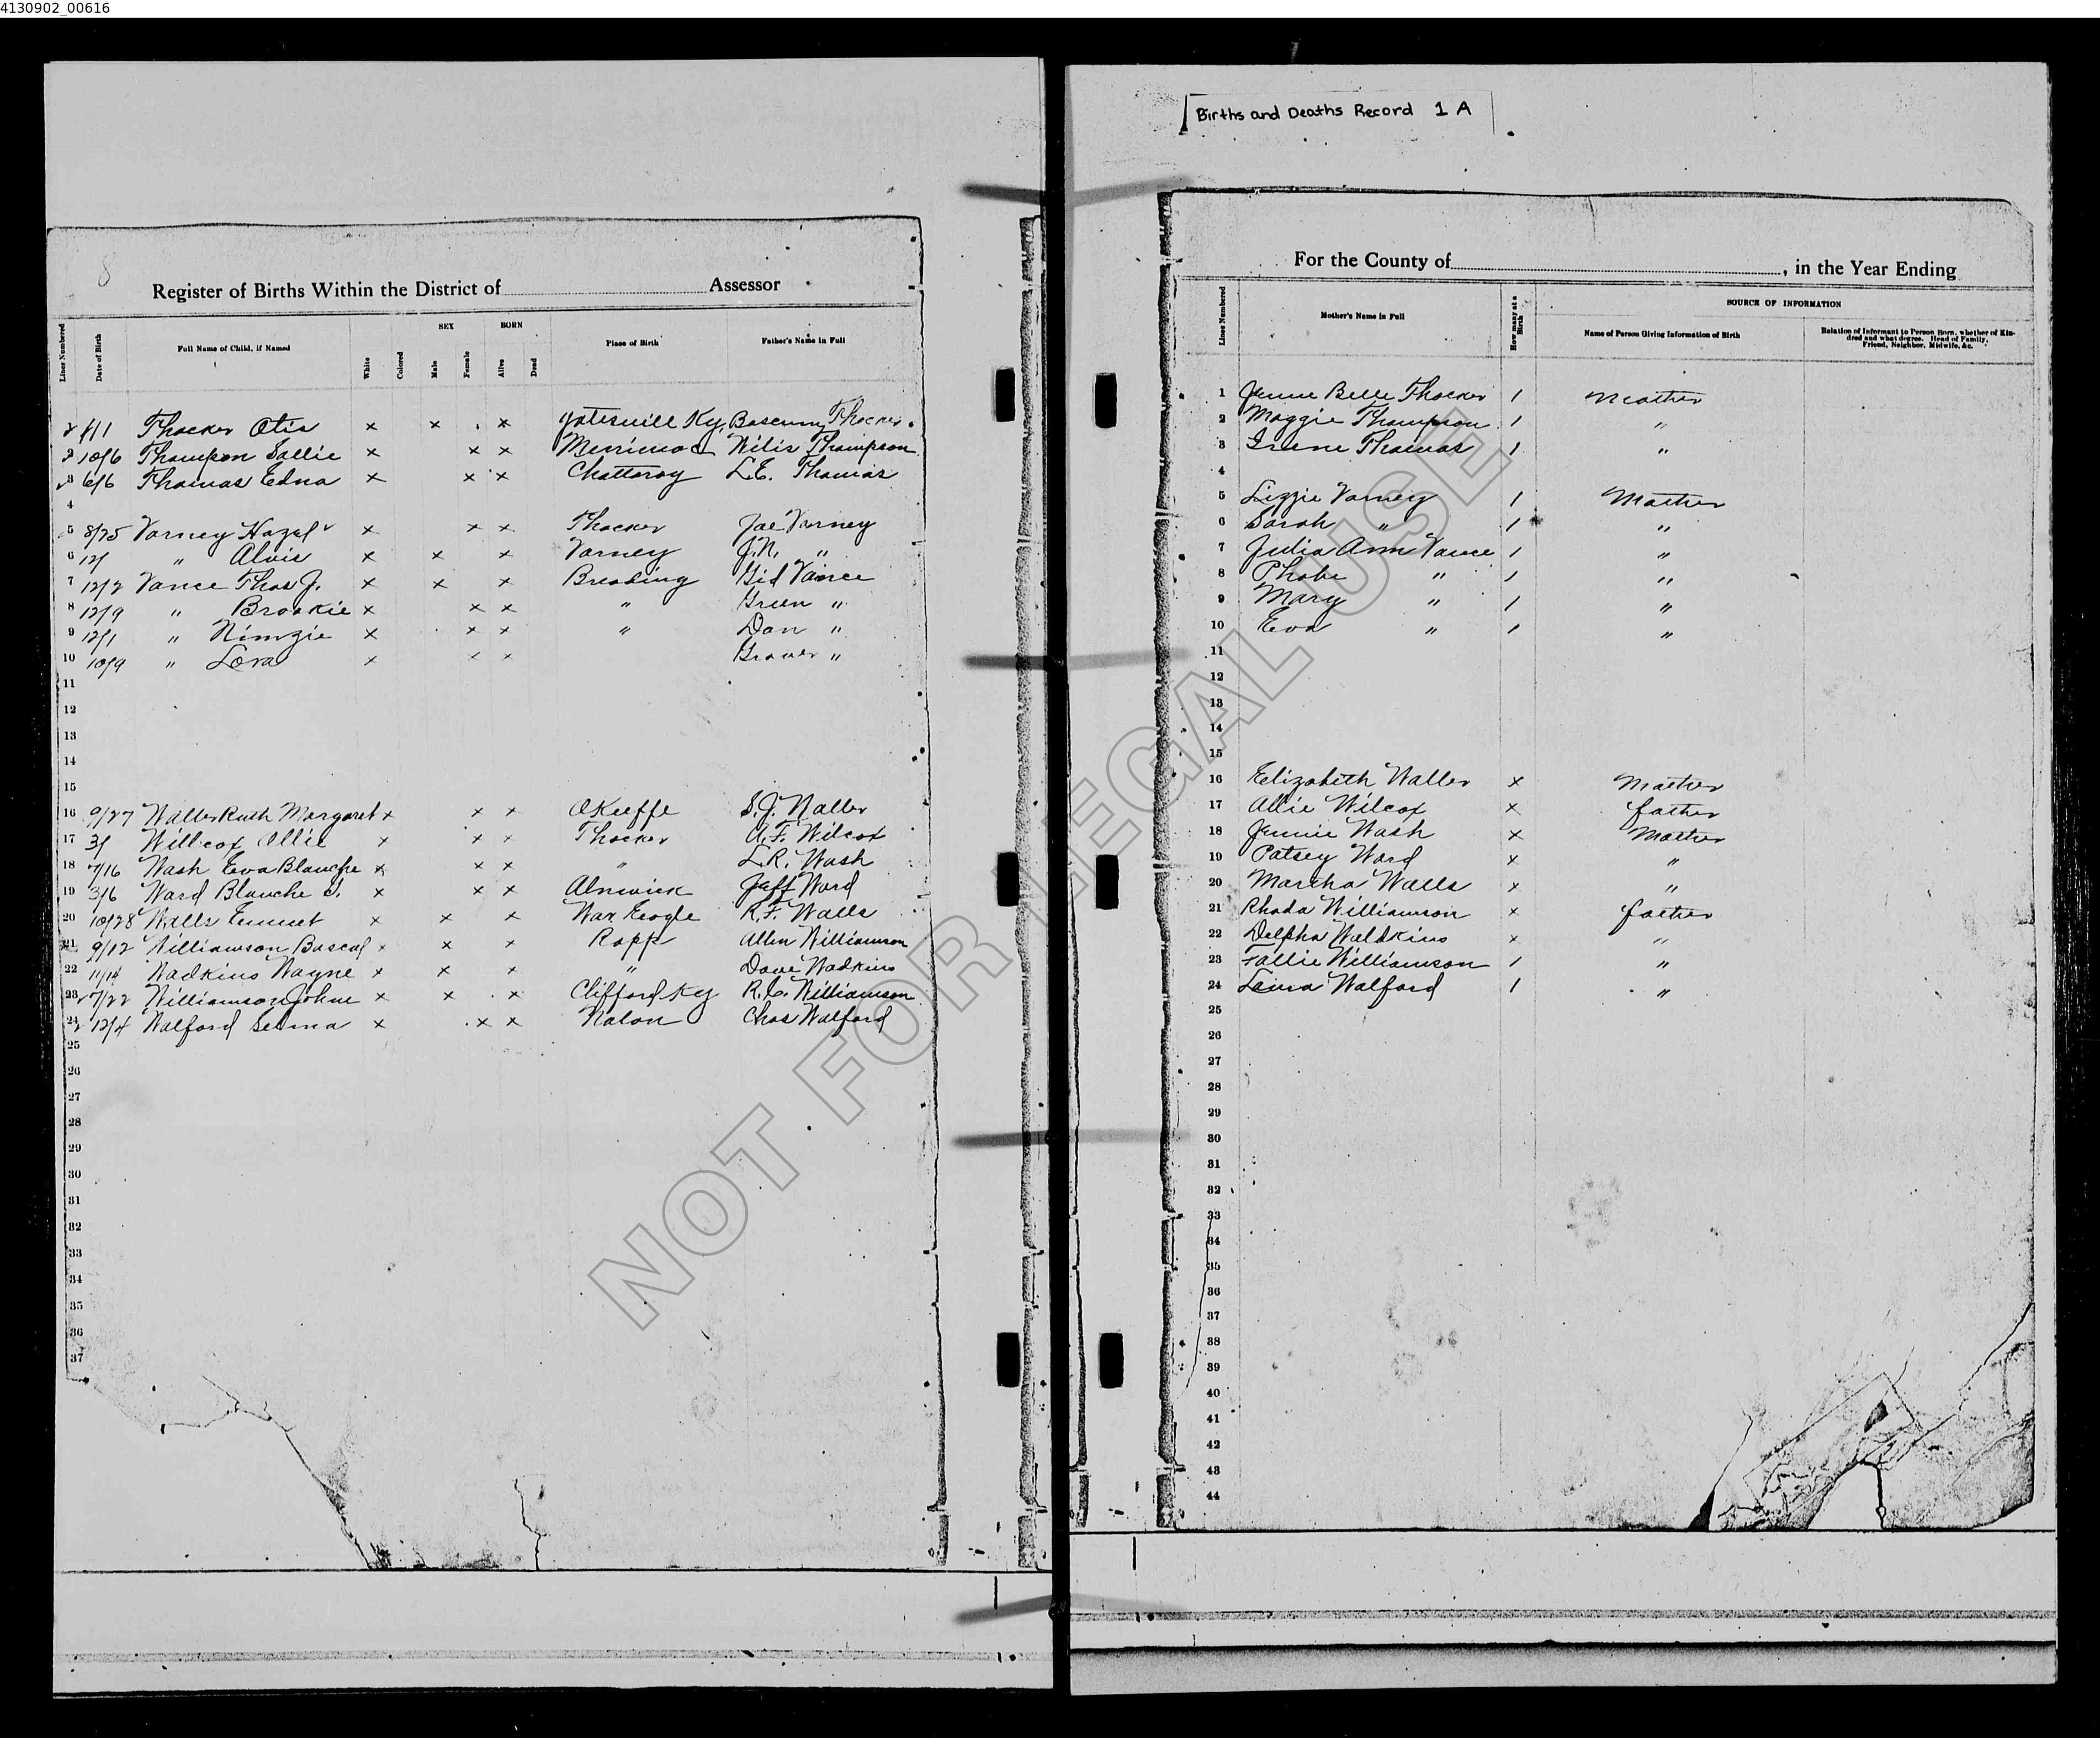 4130902_00616
8
Register of Births Within the District of Assessor
Lines Numbered
Date of Birth
Full Name of Child, if Named
White
Colored
SEX
Male
Female
BORN
Alive
Dead
Place of Birth
Father's Name in Full
Thacker Otis x x x Yatesville Ky. Thacker
2 10/6 Thompson Sallie x x x Merrimac Wilis Thompson
3 6/6 Thomas Edna x x x Chattaroy L.E. Thomas
4
5 8/25 Varney Hazel x x x Thacker Joe Varney
6 12/ " Alvis x x x Varney J.N. "
7 12/2 Vance Thos J. x x x Breading Gid Vance
8 12/9 " Brookie x x x " Green "
9 12/1 " Nimzie x x x " Dan "
10 10/9 " Lora x x x Grover "
11
12
13
14
15
16 9/27 Waller Ruth Margaret x x x OKeeffe S.J. Waller
17 3/ Willcox Allie x x x Thacker A.F. Wilcox
18 7/16 Wash Eva Blanche x x x " L.R. Wash
19 3/6 Ward Blanche x x x Alnwick Jeff Ward
20 10/28 Walls Emmet x x x War Eagle R.F. Walls
21 9/12 Williamson Bascal x x x Rapp Allen Williamson
22 11/14 Wadkins Wayne x x x " Dave Wadkins
23 7/22 Williamson Johne x x x Clifford Ky R.C. Williamson
24 12/4 Walford Selma x x x Nolan Chas Walford
25
26
27
28
29
30
31
32
33
34
35
36
37
Births and Deaths Record 1 A
For the County of , in the Year Ending
Lines Numbered
Mother's Name in Full
How many at a Birth
SOURCE OF INFORMATION
Name of Person Giving Information of Birth
Relation of Informant to Person Born, whether of Kin-
dred and what degree. Head of Family,
Friend, Neighbor, Midwife, &c.
1 Jennie Belle Thacker 1 Mother
2 Maggie Thompson 1 "
3 Irene Thomas 1 "
4
5 Lizzie Varney 1 Mother
6 Sarah " 1 "
7 Julia Ann Vance 1 "
8 Phobe " 1 "
9 Mary " 1 "
10 Eva " 1 "
11
12
13
14
15
16 Elizabeth Waller x Mother
17 Allie Wilcox x father
18 Jennie Wash x Mother
19 Patsey Ward x "
20 Martha Walls x "
21 Rhoda Williamson x father
22 Delpha Waldkins x "
23 Tallie Williamson 1 "
24 Laura Walford 1 "
25
26
27
28
29
30
31
32
33
34
35
36
37
38
39
40
41
42
43
44
NOT FOR LEGAL USE